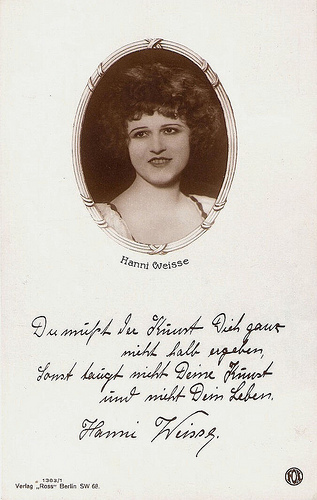 Hanni Weisse
Du mußt der Kunst Dich ganz
nicht halb ergeben,
Sonst taugt nicht Deine Kunst
und nicht Dein Leben.
Hanni Weisse.
1382/1
Verlag „Ross" Berlin SW 68.